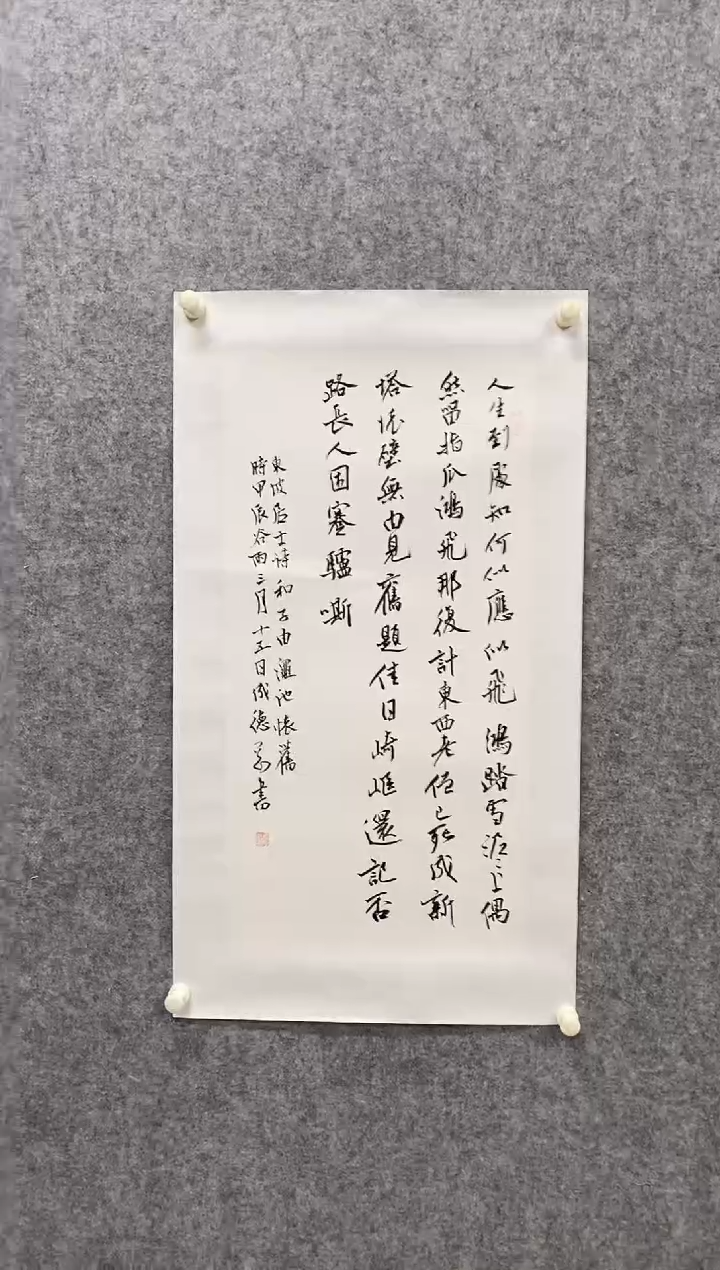 人生到處知何似應似飛鴻踏雪泥泥上偶
然留指爪鴻飛那復計東西老僧已死成新
塔壞壁無由見舊題往日崎嶇還記否
路長人困蹇驢嘶
東坡居士詩和子由澠池懷舊
時甲辰谷雨三月十五日成德書